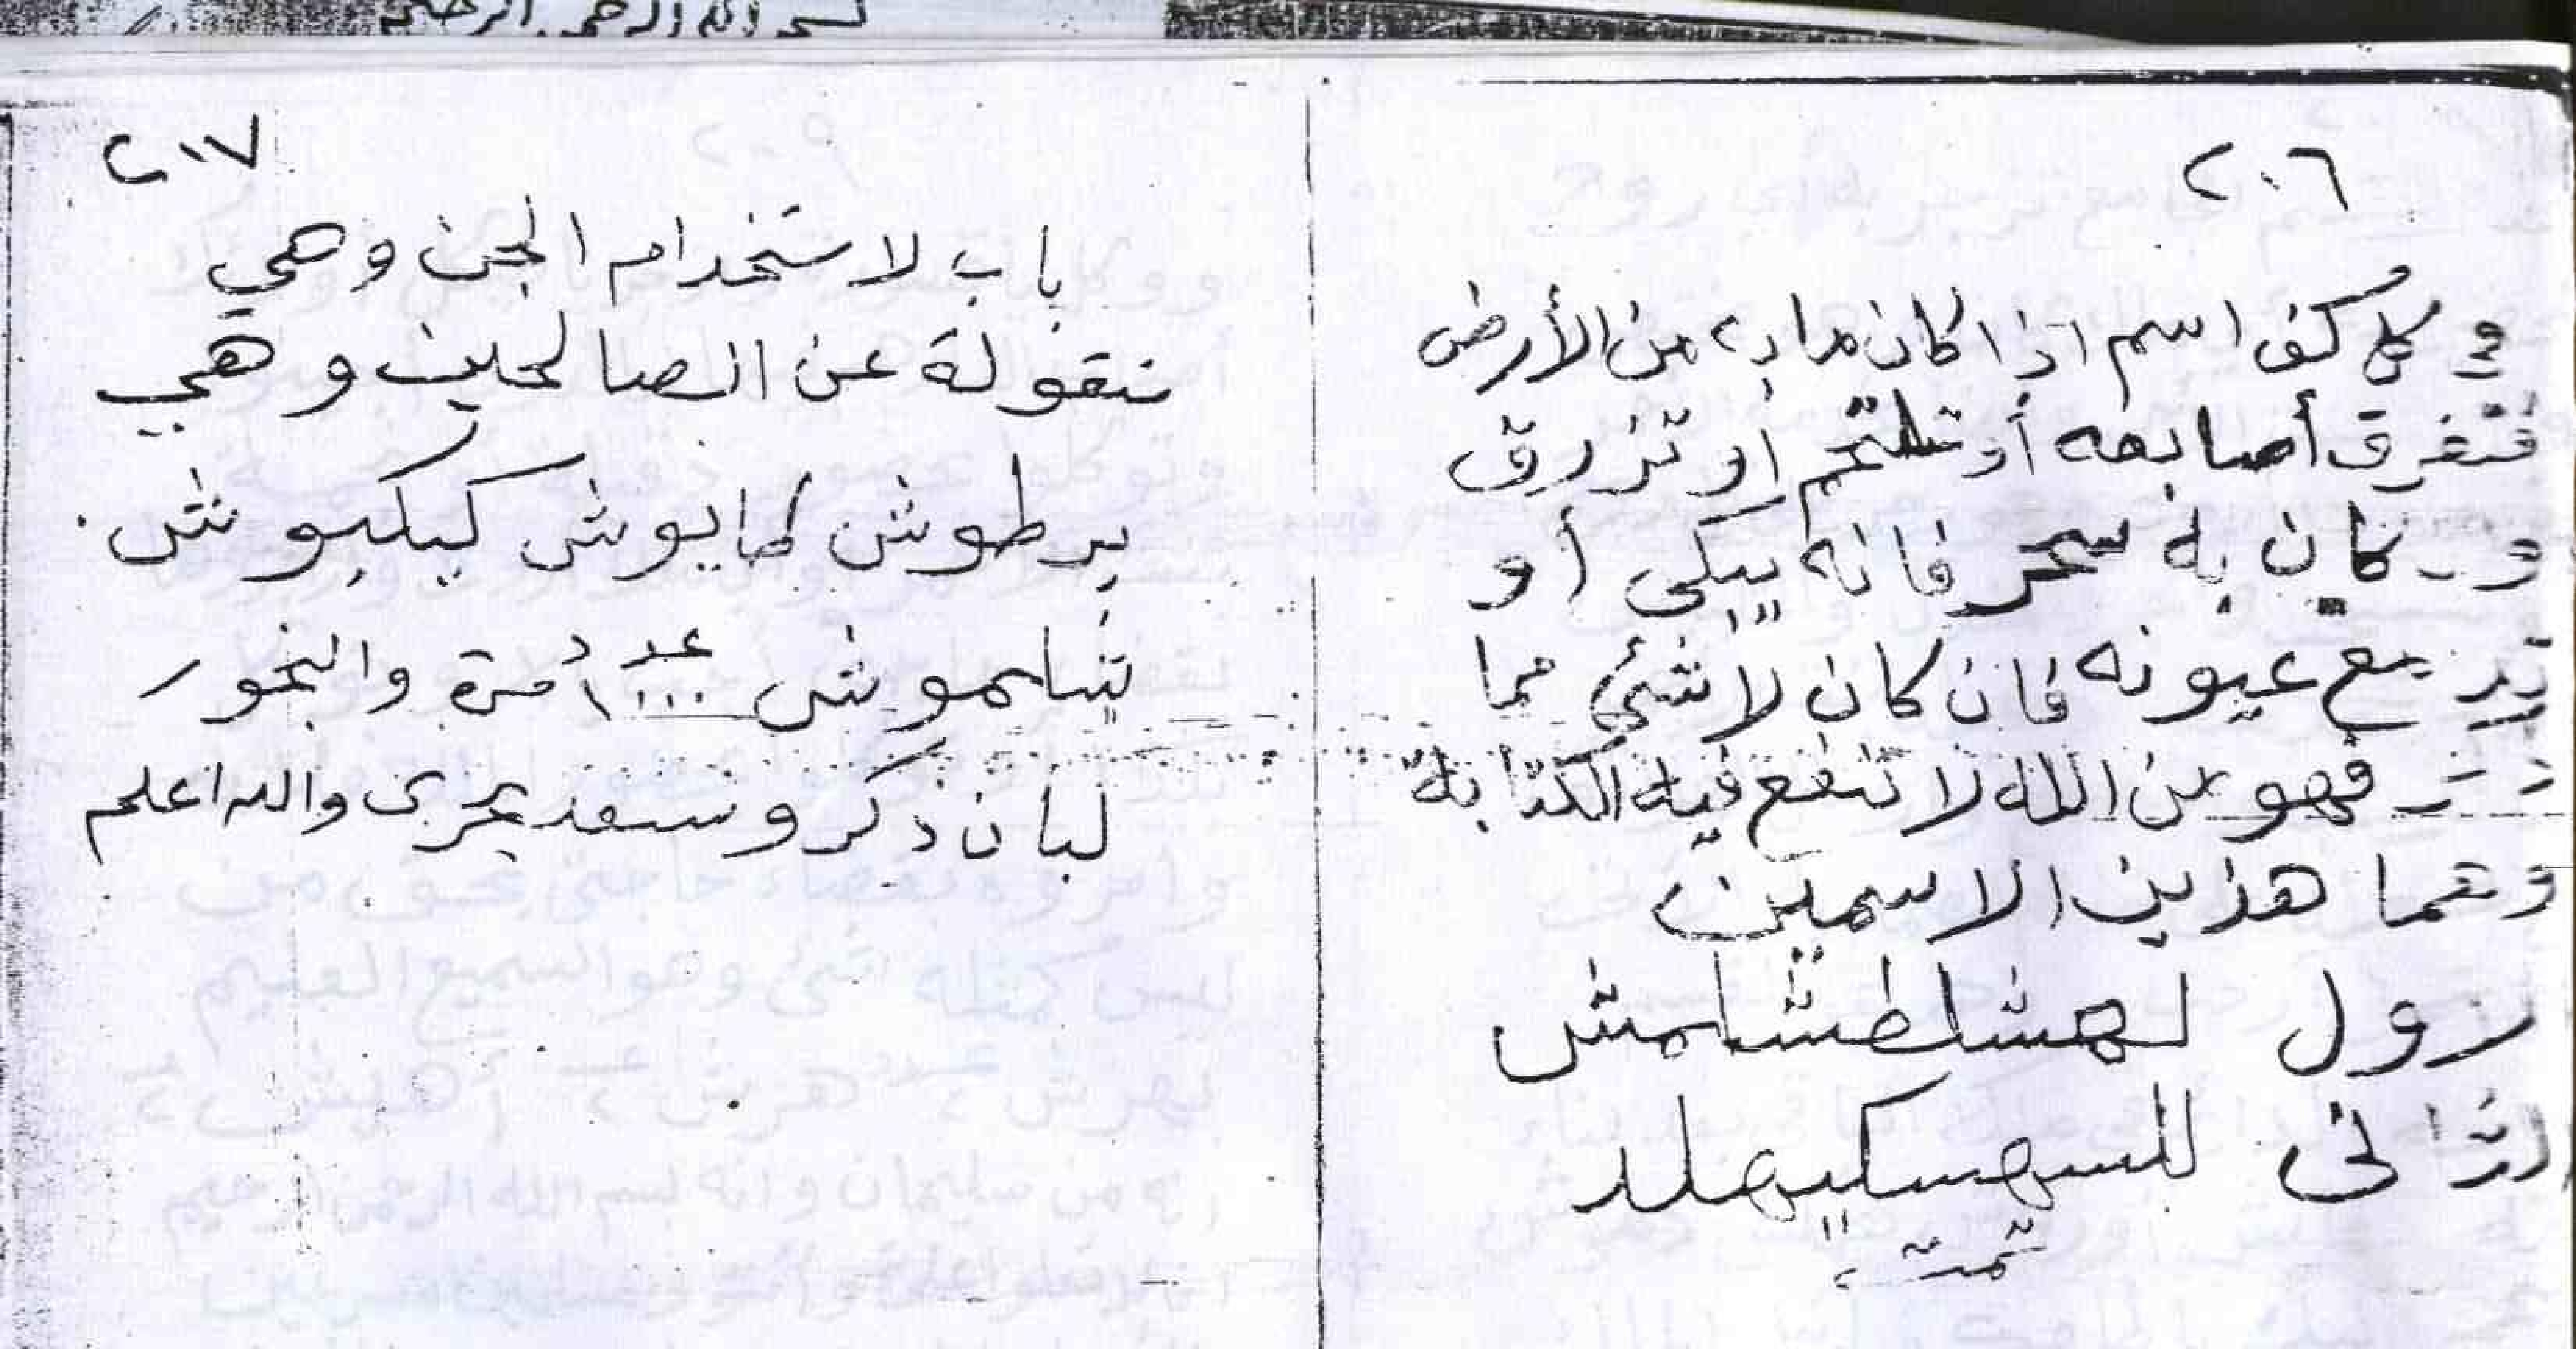 بسم الله الرحمن الرحيم
٢٠٦
في كل كف اسم اذا كان ما به من الأرض
فتفرق أصابعه أو تلتحم أو تزرق
و كان به سحر فانه يبكي أو
تدمع عيونه فان كان لا شئ مما
فهو من الله لا تنفع فيه الكتابة
وهما هذين الاسمين
لاول لهشلطشلمش
الثانى للسهسليهلد
تمت
٢٠٧
باب لاستخدام الجن وهي
منقولة عن الصالحين وهي
برطوش طايوش كيلبوش
شلموش عدد ١٠٠٠ مرة والبخور
لبان ذكر وسعد يجرى والله اعلم